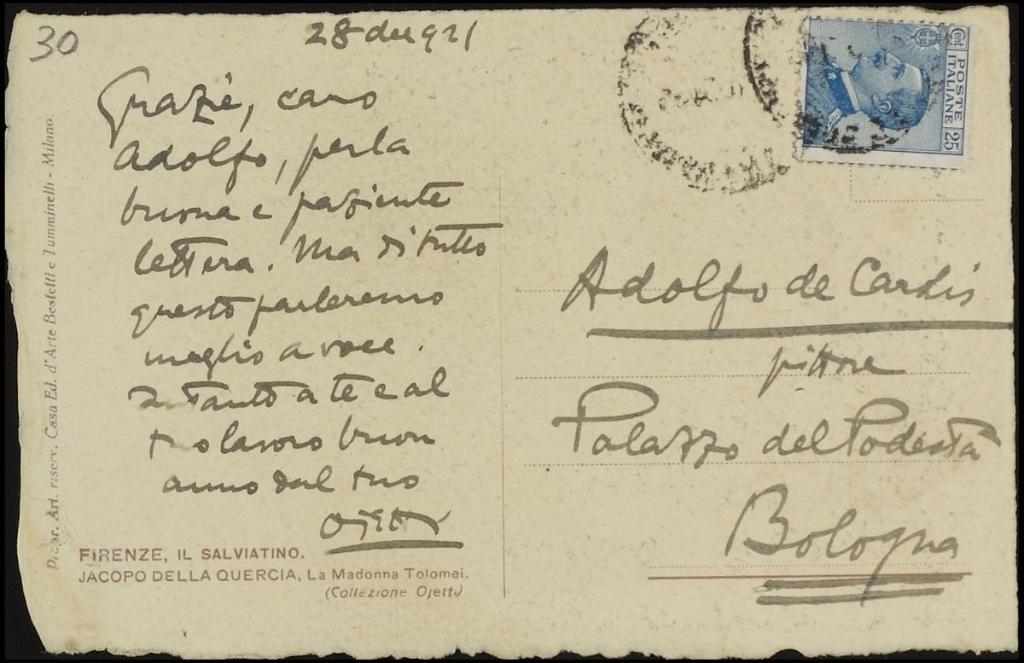 30
28 dic 921
Grazie, caro
Adolfo, per la
buona e paziente
lettera. Ma di tutto
questo parleremo
meglio a voce.
Intanto a te e al
tuo lavoro buon
anno dal tuo
Ojetti
FIRENZE, IL SALVIATINO.
JACOPO DELLA QUERCIA, La Madonna Tolomei.
(Collezione Ojetti)
Propr. Art. riserv. Casa Ed. d'Arte Bestetti e Tumminelli - Milano.
Cent 25
POSTE
ITALIANE
Adolfo de Carolis
pittore
Palazzo del Podestà
Bologna